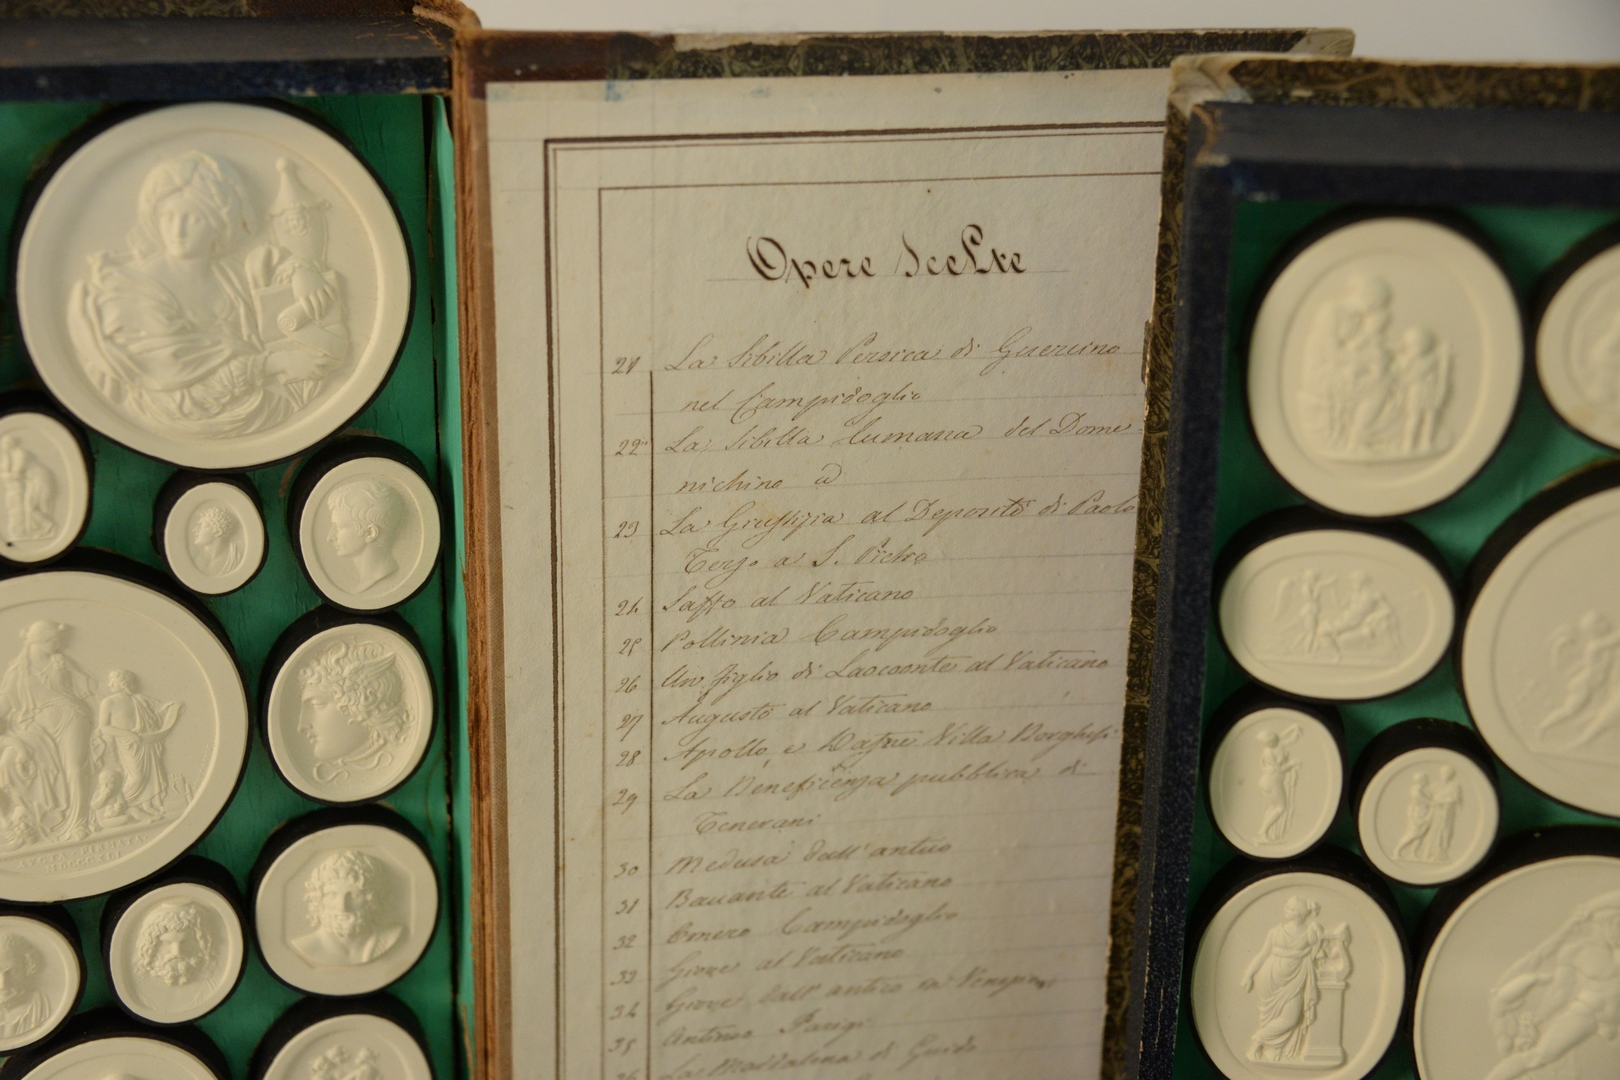 Opere Scelte
21 La Sibilla Persica di Guercino
nel Campidoglio
22 La Sibilla Cumana del Dome-
nichino
23 La Giustizia al Deposito di Paolo
Terzo a S. Pietro
24 Saffo al Vaticano
25 Pollinia Campidoglio
26 Un figlio di Laocoonte al Vaticano
27 Augusto al Vaticano
28 Apollo e Dafne Villa Borghesi
29 La Beneficenza pubblica di
Tenerani
30 Medusa dall'antico
31 Baccante al Vaticano
32 Omero Campidoglio
33 Giove al Vaticano
34 Giove dall'antico
35 Antinoo Parigi
36 La Maddalena di Guido